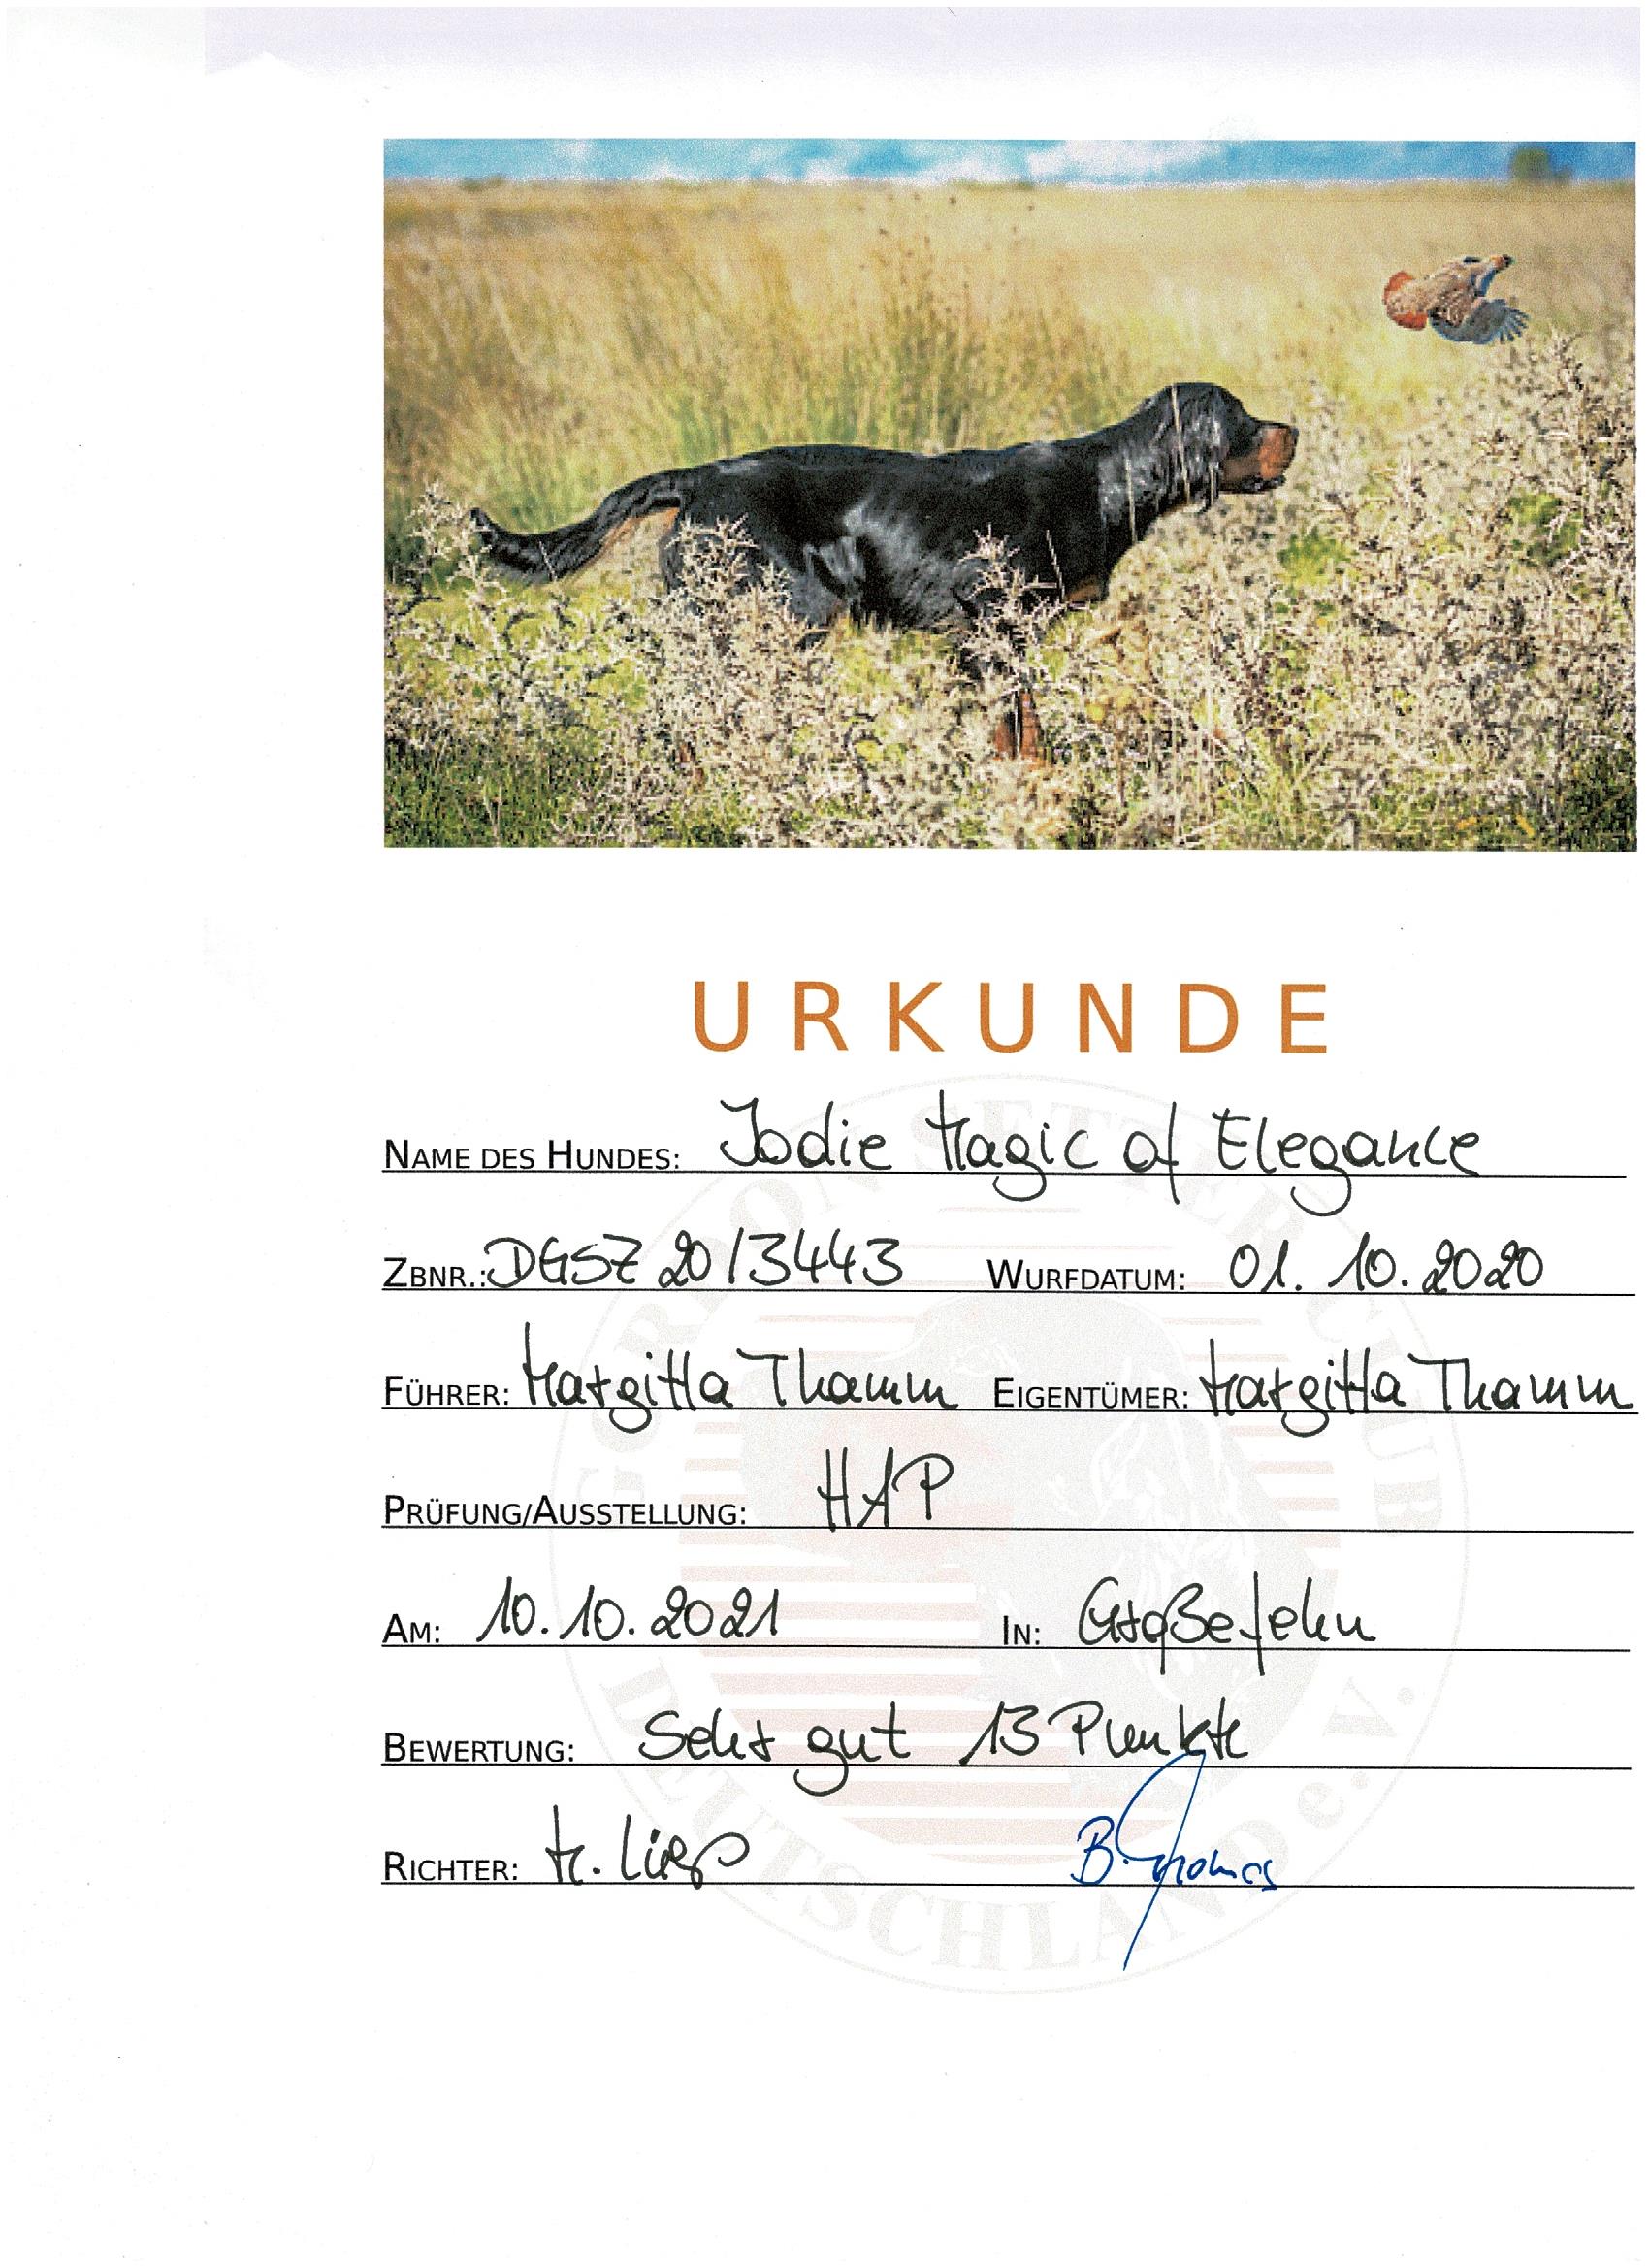 URKUNDE
NAME DES HUNDES: Jodie Magic of Elegance
ZBNR.: DGSZ 20/3443 WURFDATUM: 01.10.2020
FÜHRER: Margitta Thamm EIGENTÜMER: Margitta Thamm
PRÜFUNG/AUSSTELLUNG: HAP
AM: 10.10.2021 IN: Großefehn
BEWERTUNG: Sehr gut 13 Punkte
RICHTER: M. B. Thomas
GORDON SETTER CLUB
DEUTSCHLAND e.V.